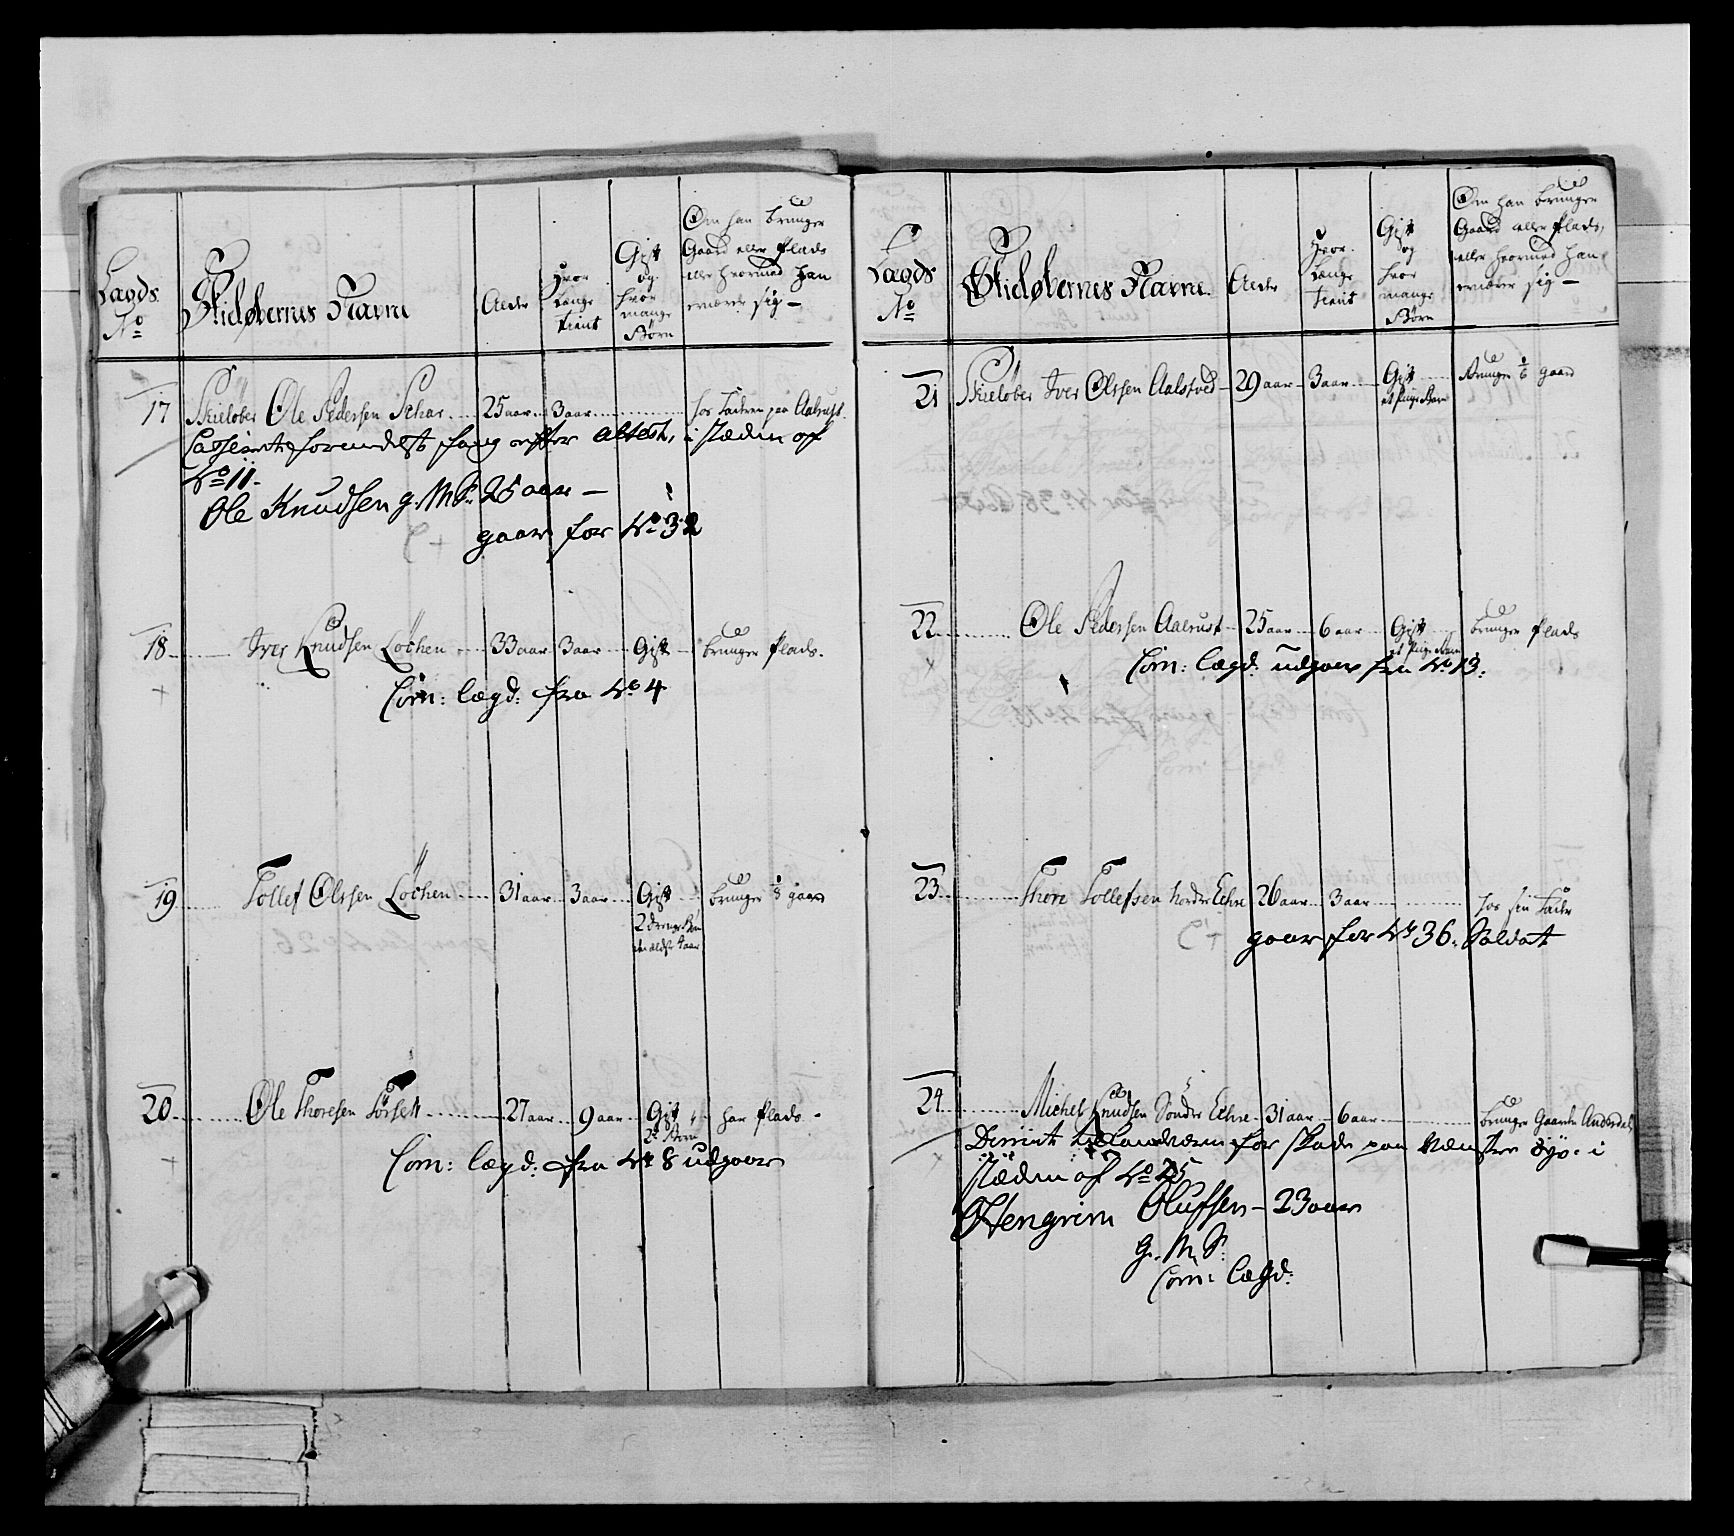 Lægds
No
Skieløbernes Navne
Alder
Hvor
Længe
tient
Gift
og
hvor
mange
Børn
Om han bruuger
Gaard eller Plads
eller hvormed han
ernærer sig —
17
Skieløber Ole Pedersen Schar
25 aar
3 aar
hos Faderen paa Aalrust
Casseert formedelst efter attest, i stæden af
No 11.
Ole Knudsen g. M. S. 25 aar —
gaar for No 32
18
Iver Knudsen Löchen
33 aar
3 aar
Gift
bruuger Plads.
Com: lægd: fra No 4
19
Tollef Olssen Löchen
31 aar
3 aar
Gift
bruuger 1/8 gaard
2 drenge Børn
den ældste 4 aar
20
Ole Thoresen Forseth
27 aar
9 aar
Gift
har Plads
2 Børn
Com: lægd: fra No 8 udgaar
Lægds
No
Skieløbernes Navne
Alder
Hvor
Længe
tient
Gift
og
hvor
mange
Børn
Om han bruuger
Gaard eller Plads,
eller hvormed han
ernærer sig —
21
Skieløber Iver Olssen Aalstved
29 aar
3 aar
Gift
et Pige Barn
Bruuger 1/6 gaard
22
Ole Pedersen Aalrust
25 aar
6 aar
Gift
et Pige Barn
bruuger Plads
Com: lægd: udgaar fra No 13.
23
Thore Tollefsen Nordre Echre
26 aar
3 aar
hos sin Fader
gaar for No 36. Soldat
24
Michel Knudsen Söndre Echre
31 aar
6 aar
bruuger Gaarden Anderdal
Dimit: til Landværn for skade paa venstre øye. i
stæden af No 25
Hengrim Olufsen — 23 aar
g. M. S.
Com: lægd: